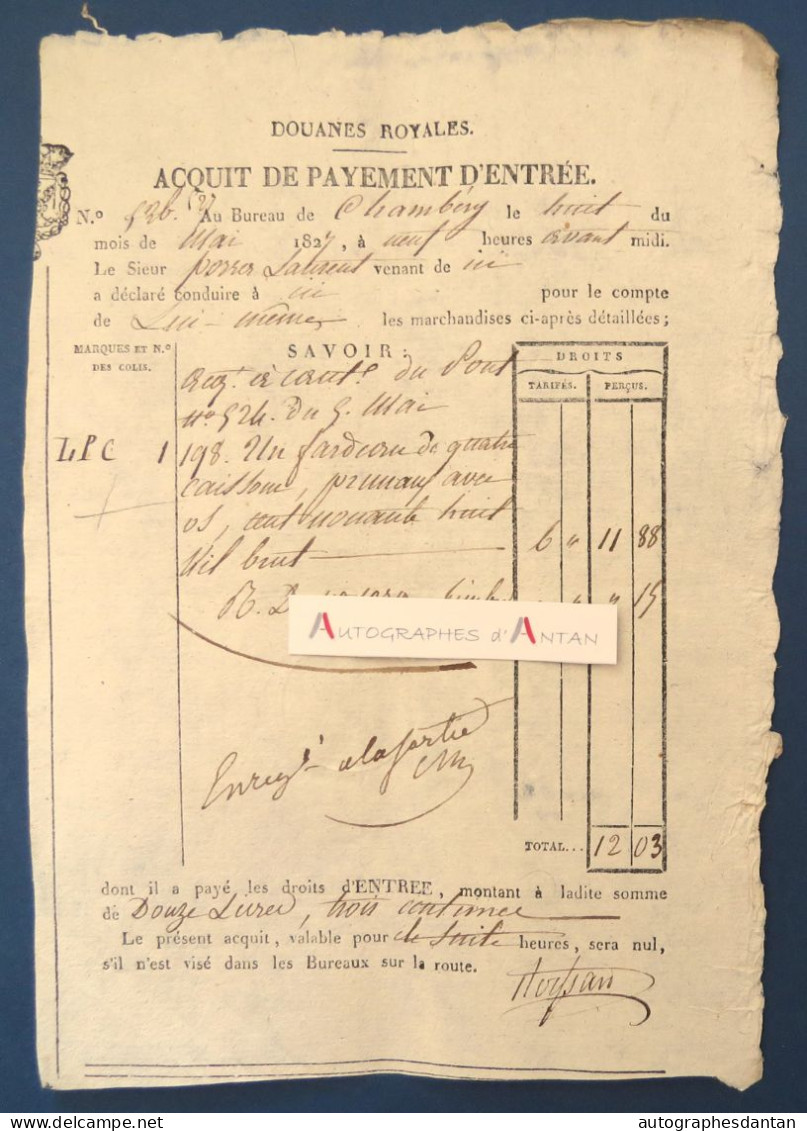 DOUANES ROYALES.
ACQUIT DE PAYEMENT D'ENTRÉE.
N.º 526. Au Bureau de Chambéry le huit du
mois de Mai 1827, à neuf heures avant midi.
Le Sieur Laurent venant de ici
a déclaré conduire à ici pour le compte
de Lui-même les marchandises ci-après détaillées;
MARQUES ET N.º
DES COLIS.
SAVOIR:
DROITS
TARIFÉS. PERÇUS.
du Pont
Nº 524. Du 5. Mai
LPC 1 198. Un fardeau de quatre
caissons, pruneaux avec
os, cent nonante huit
Kil brut 6 " 11 88
" 15
AUTOGRAPHES d'ANTAN
Enreg.é a la sortie
TOTAL... 12 03
dont il a payé les droits d'ENTRÉE, montant à ladite somme
de Douze Livres, trois centimes
Le présent acquit, valable pour de suite heures, sera nul,
s'il n'est visé dans les Bureaux sur la route.
autographesdantan autographesdantan